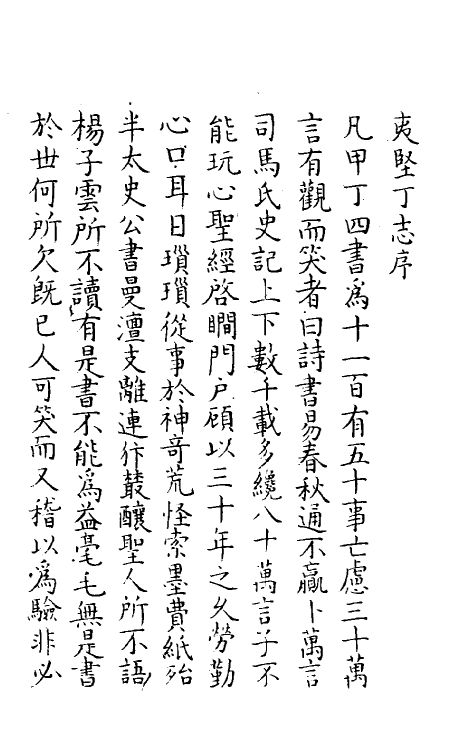 夷堅丁志序
凡甲丁四書爲十一百有五十事亡慮三十萬
言有觀而笑者曰詩書易春秋通不贏十萬言
司馬氏史記上下數千載多纔八十萬言子不
能玩心聖經啓瞷門户顧以三十年之久勞勤
心口耳目瑣瑣從事於神竒荒怪索墨費紙殆
半太史公書曼澶支離連犿叢釀聖人所不語
楊子雲所不讀有是書不能爲益毫毛無是書
於世何所欠旣已人可笑而又稽以爲驗非必